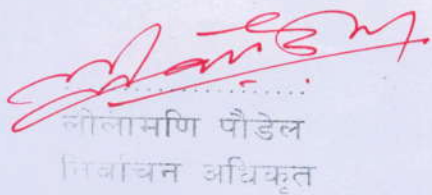 लीलामणि पौडेल
निर्वाचन अधिकृत